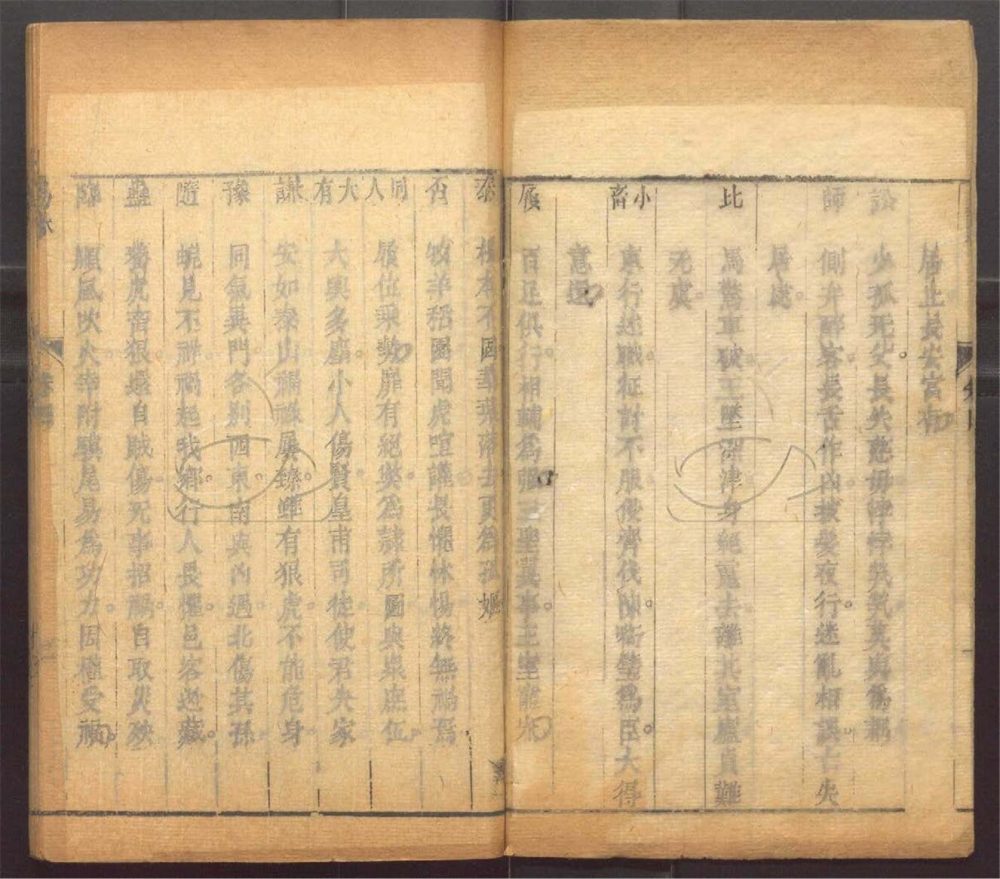 居止長安官
訟 少孤死父長失慈母悖悖煢煢莫與爲耦
師 側弁醉客長舌作凶披髮夜行迷亂相誤亡失
居處
比 馬驚車破王墜深津身絕魂去離其室廬貞難
无虞
小畜 東行述職征討不服侵齊伐陳銜璧爲臣大得
意還
履 百足俱行相輔爲强三聖翼事王室寵光
泰 本不固華葉落去更爲孤嫗
否 牧羊稻園聞虎喧讙長懼怵惕終無禍爲
同人 履位乘勢靡有絕斃爲隸所圖與衆庶伍
大有 大輿多塵小人傷賢皇甫司徒使君失家
謙 安如泰山福祿屢臻雖有狼虎不能危身
豫 同氣異門各別西東南與凶遇北傷其孫
隨 蜺見不祥禍起我鄉行人畏懼邑客逃藏
蠱 養虎畜狼還自賊傷死事招禍自取災殃
臨 順風吹火牽附驥尾易爲功力因權受福